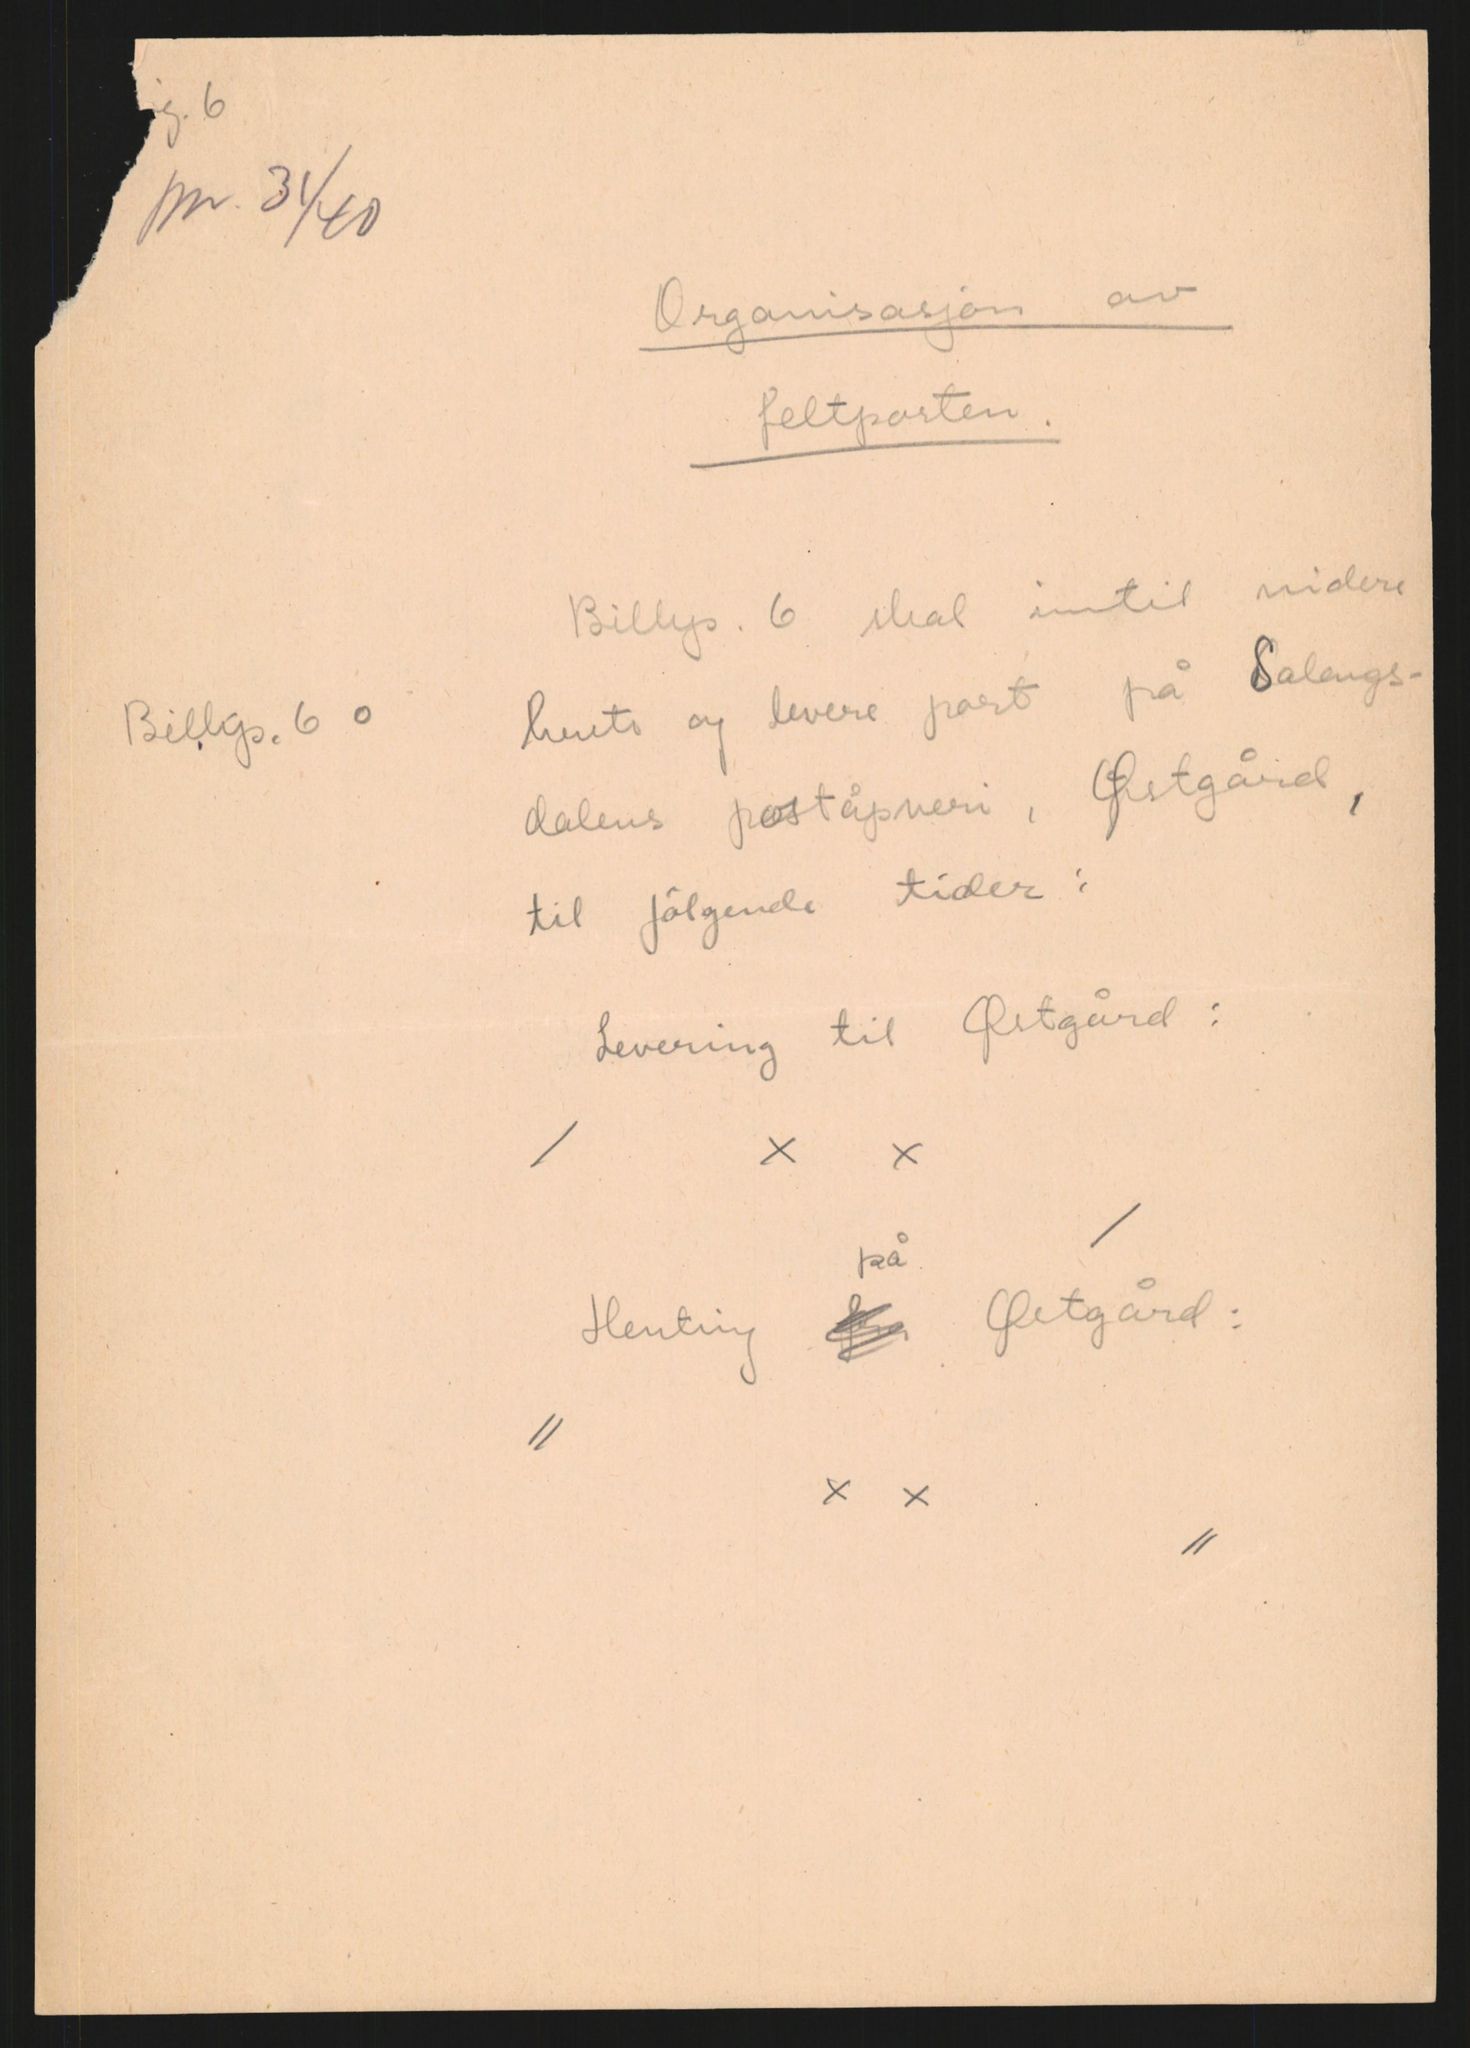 g. 6
pnr. 31/40
Organisasjon av
feltposten.
Billgs. 6 skal inntil videre
Billgs. 6 o
hente og levere post på Salangs-
dalens poståpneri, Østgård,
til følgende tider:
Levering til Østgård:
/ x x
/
på
Henting Østgård:
//
x x
//